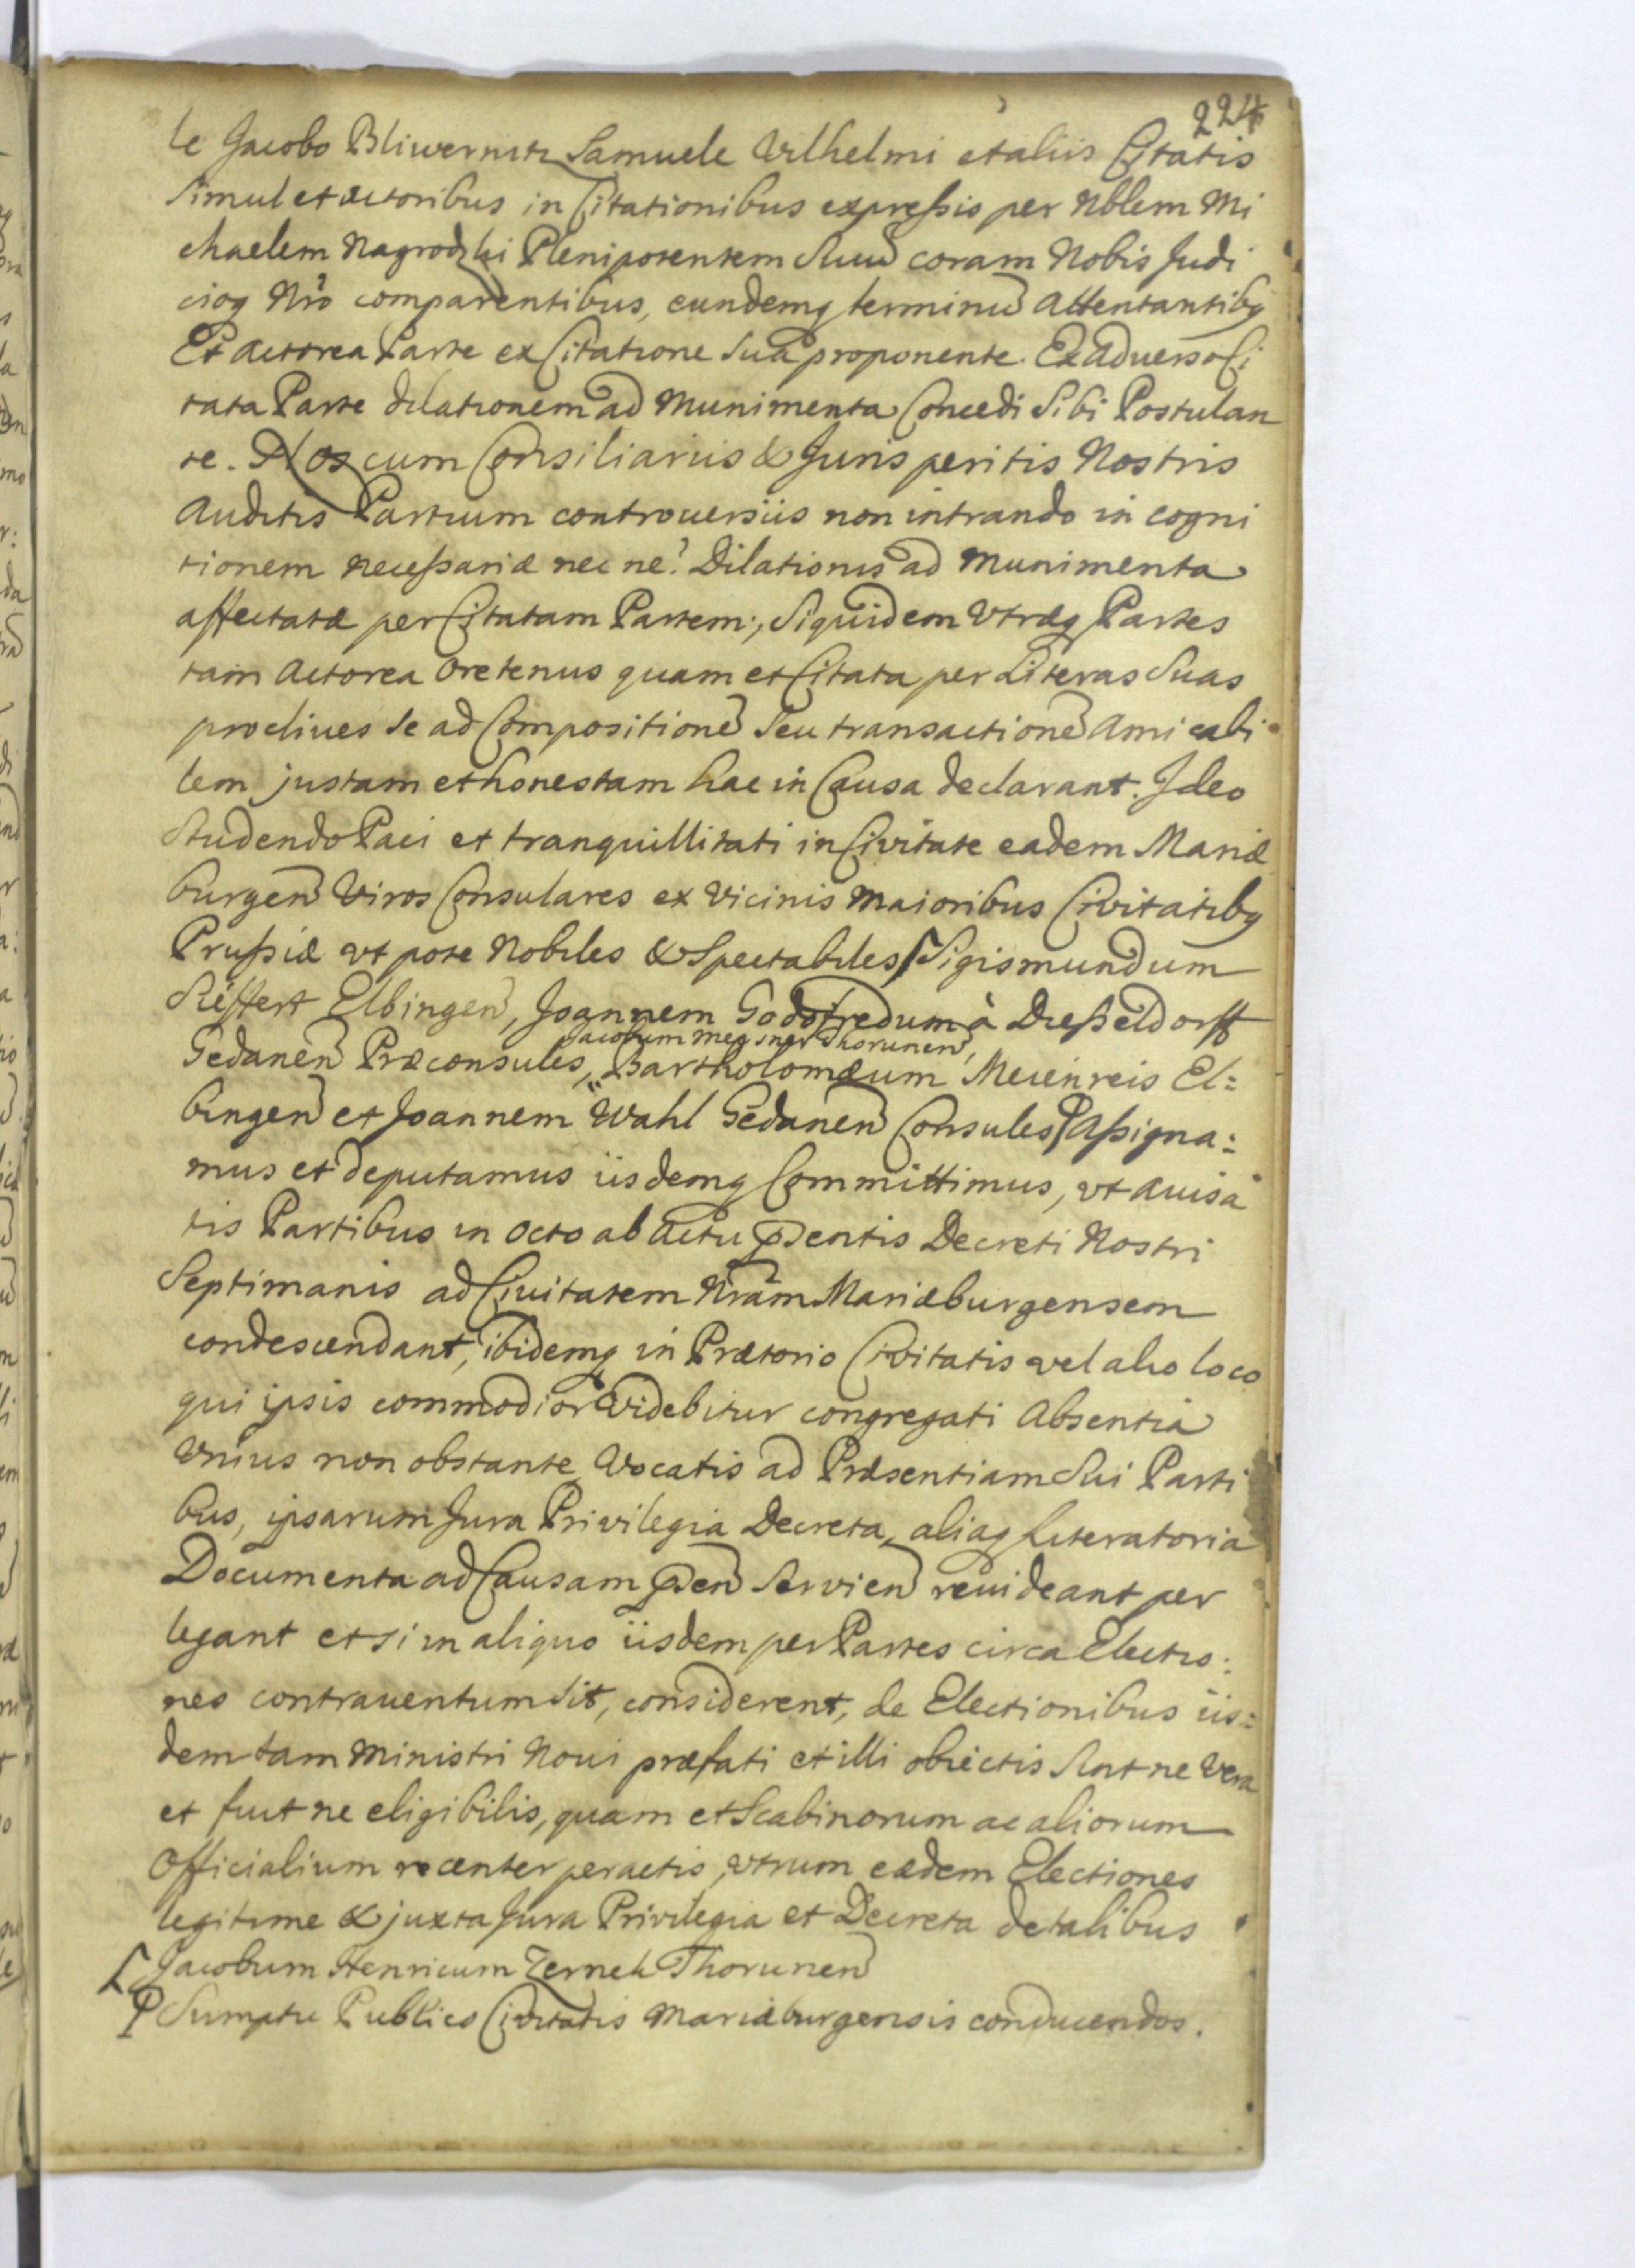 224
le Jacobo Bliwernitz Samuele Wilhelmi et aliis Citatis
simul et Actoribus in Citationibus expressis per Nblem Mi
chaelem Nagrodzki Plenipotentem Suũ coram Nobis Judi
cioq Nrõ comparentibus, eundemq terminũ Attentantibq
Et Actorea Parte ex Citatione Sua proponente. Ex Adverso Ci
tata Parte dilationem ad Munimenta Concedi Sibi Postulan
te. Nos cum Consiliariis & Juris peritis Nostris
Auditis Partium controuersiis non intrando in cogni
tionem necessariæ nec ne? Dilationis ad Munimenta
affectatæ per Citatam Partem:, Siquidem Vtræq Partes
tam Actorea Oretenus quam et Citata per Literas Suas
procliues se ad Compositionẽ Seu transactionẽ Amicabi
lem justam et honestam hac in Causa declarant. Ideo
Studendo Paci et tranquillitati in Civitate eadem Mariæ
burgeñ Viros Consulares ex Vicinis Maioribus Civitatibq
Prussiæ vt pote Nobiles & Spectabiles Sigismundum
Sieffert Elbingeñ, Joannem Godofredum à Diesseldorff
Jacobum Megsner Thoruneñ,
Gedaneñ Præconsules, Bartholomæum Meienreis El=
bingeñ et Joannem Wahl Gedaneñ Consules Assigna:
mus et deputamus iisdemq Committimus, vt auisa
tis Partibus in Octo ab Actu pñtis Decreti Nostri
Septimanis ad Ciuitatem Nrãm Mariæburgensem
condescendant, ibidemq in Prætorio Civitatis vel alio loco
qui ipsis commodior videbitur congregati Absentia
Vnius non obstante Vocatis ad Præsentiam Sui Parti
bus, ipsarum Jura Privilegia Decreta, aliaq Literatoria
Documenta ad Causam pñteñ Servieñ reuideant per
legant et si in aliquo iisdem per Partes circa Electio:
nes contrauentum sit, considerent, de Electionibus iis=
dem tam Ministri Noui præfati et illi obiectis Sint ne Vera
et fuit ne eligibilis, quam et Scabinorum ac aliorum
Officialium recenter peractis, vtrum eædem Electiones
legitime & juxta Jura Privilegia et Decreta de talibus
Jacobum Henricum Zerneck Thoruneñ
Sumptu Publico Civitatis Mariæburgensis conducendos.